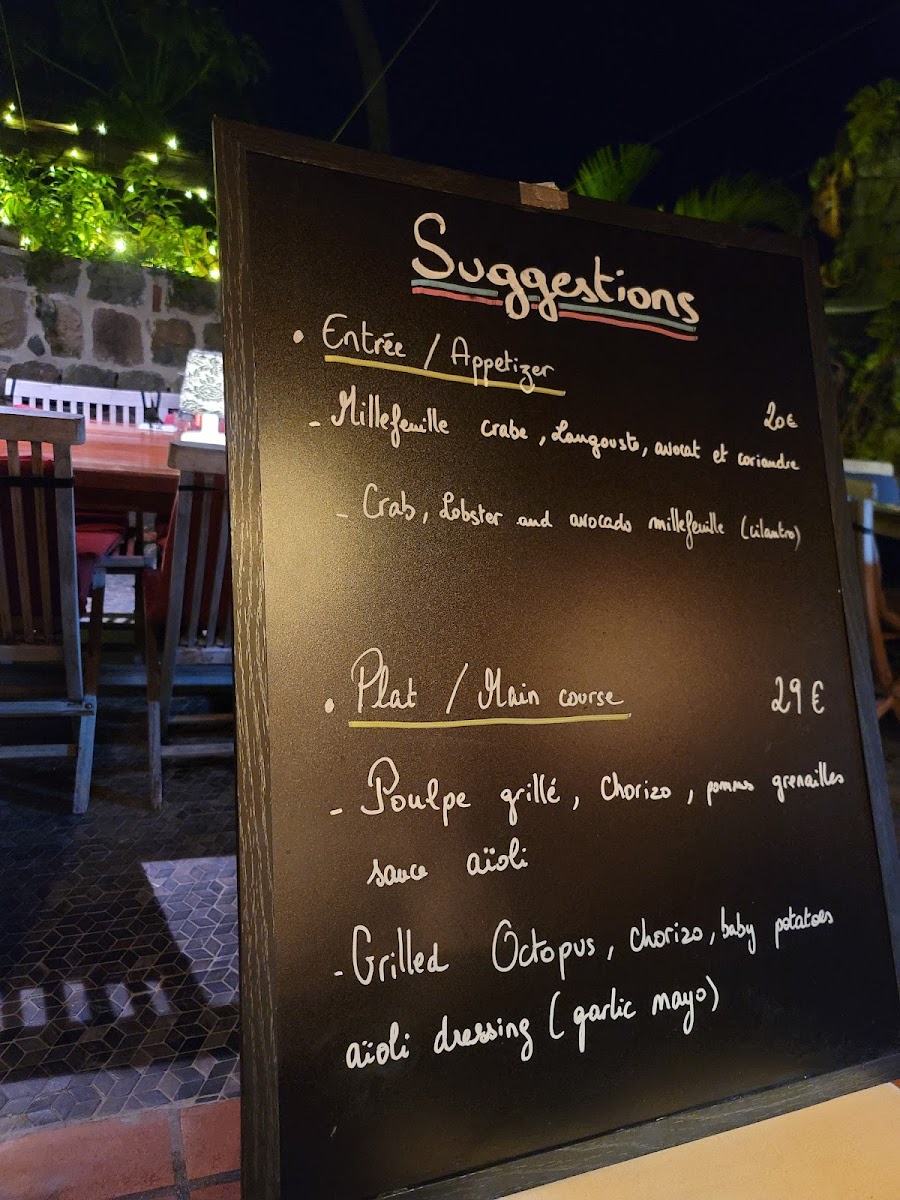 Suggestions
• Entrée / Appetizer
20€
- Millefeuille crabe, Langouste, avocat et coriandre
- Crab, Lobster and avocado millefeuille (cilantro)
• Plat / Main course 29€
- Poulpe grillé, chorizo, pommes grenailles
sauce aïoli
- Grilled Octopus, chorizo, baby potatoes
aïoli dressing (garlic mayo)